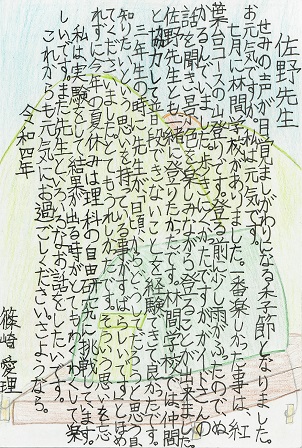 佐野先生
せみの声が目覚ましがわりになる季節になりました。
お元気ですか。私は元気です。
七月に林間学校がありました。一番楽しかった事は、紅
葉台コースの山登りです。登る前に少し雨がふったので、ぬ
かるんでいました。歩きにくかったですがガイドさんの
話を聞き景色を楽しみながら登ることが出来ました。
佐野先生とも一緒に登りたかったです。林間学校では仲間
と協力して普段できないことを経験できて良かったです。
三年生の時、先生が日頃からどうしてだろうと思う
知りたいと思いを持てる事がすばらしいですとほめ
てくださいました。とてもうれしかったです。そういう思いを忘
れずに今年の夏休みは理科の自由研究に挑戦しています。
私は実験をして結果が出る時がとてもわくわくして楽
しいです。また先生といろんなお話をしたいです。
これからも元気にお過ごしください。さようなら。
令和四年
篠崎愛理